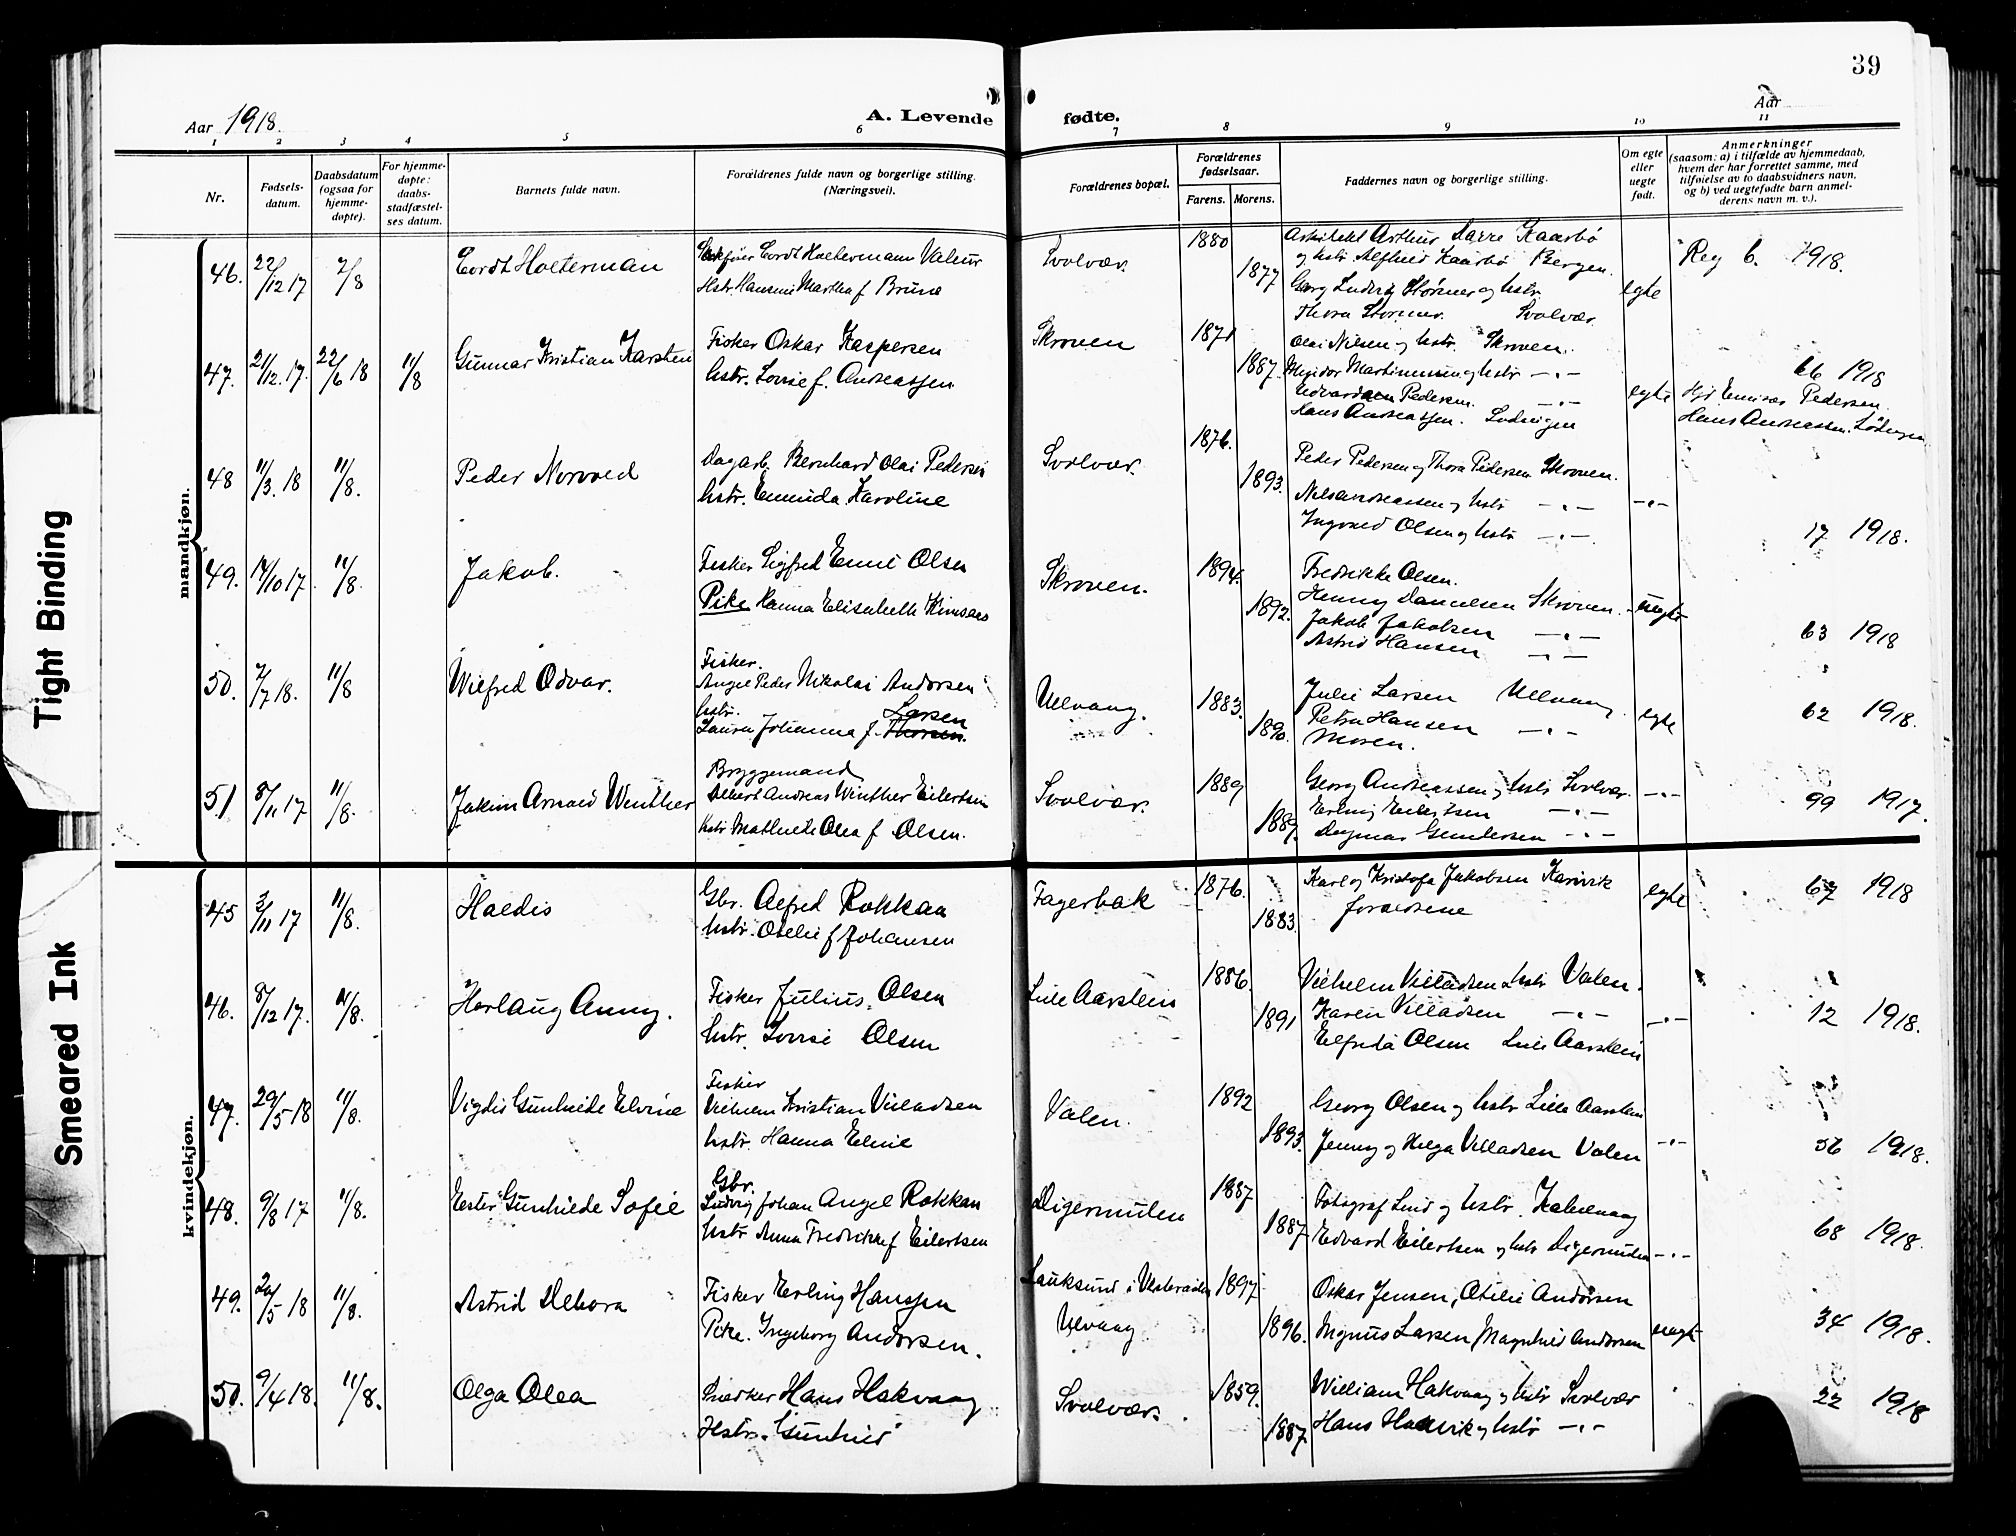 39
Aar 1918.
A. Levende fødte.
Aar
1 2 3 4 5 6 7 8 9 10 11
Nr.
Fødsels-
datum.
Daabsdatum
(ogsaa for
hjemme-
døpte).
For hjemme-
døpte:
daabs-
stadfæstel-
ses datum.
Barnets fulde navn.
Forældrenes fulde navn og borgerlige stilling.
(Næringsvei).
Forældrenes bopæl.
Forældrenes
fødselsaar.
Farens. Morens.
Faddernes navn og borgerlige stilling.
Om egte
eller
uegte
født.
Anmerkninger
(saasom: a) i tilfælde av hjemmedaab,
hvem der har forrettet samme, med
tilføielse av to daabsvidners navn,
og b) ved uegtefødte barn anmel-
derens navn m. v.).
mandkjøn.
46. 22/12 17 7/8 Cordt Holterman
Cordt Holtermann Valeur
Hstr. Martha f Brune
Svolvær.
1880
1877
Arkitekt Arthur Kaarbø
og hstr Kaarbø Bergen.
Georg Ludvig Størmer og hstr
Thora Størmer. Svolvær
egte
Reg 6. 1918.
47. 21/12 17. 22/6 18 11/8 Gunnar Kristian Karsten
Fisker Oskar Kaspersen
hstr. Lovise f. Andreassen
Skroven
1871
1887.
Olai Nilsen og hstr. Skroven.
Martinussen og hstr —"—
Pedersen. —"—
Hans Andreassen.
egte
66 1918
Pedersen.
Hans Andreassen. Lødingen
48 11/3. 18 11/8. Peder Norvald
Dagarb. Bernhard Olai Pedersen
hstr. Karoline
Svolvær.
1876.
1893.
Peder Pedersen og Thora Pedersen Skroven.
Nils Andreassen og hstr —"—
Ingvald Olsen og hstr —"—
—"—
17 1918.
49. 14/10 17. 11/8. Jakob.
Fisker Sigfred Emil Olsen
Pike Hanna Elisabeth
Skroven.
1894.
1892.
Fredrikke Olsen.
Henny Danielsen Skroven.
Jakob Jakobsen —"—
Astrid Hansen —"—
uegte
63 1918
50. 2/7 18. 11/8 Wilfred Odvar.
Fisker.
Angel Peder Nikolai Andorsen
hstr. Larsen
Laura Johanna f. Thorsen.
Ulvaag.
1883.
1890.
Julie Larsen Ulvaag
Petra Hansen —"—
Moren.
egte
62 1918.
51 8/11 17 11/8. Jakim Arnold Winther
Bryggemand
Albert Andreas Winther Eilertsen
hstr Mathilde Olea f Olsen.
Svolvær.
1889
1889.
Georg Andreassen og hstr Svolvær.
Erling Eilertsen —"—
Dagmar Gundersen —"—
—"—
99 1917.
kvindekjøn.
45 3/11 17 11/8. Haldis
Gbr. Alfred Rokkan
hstr. Otelie f Johansen
Fagerbak
1876.
1883.
Karl og Kristofa Jakobsen Kanvik
forældrene
egte
67 1918
46. 8/12 17. 11/8. Herlaug Anny.
Fisker Julius Olsen
hstr. Lovise Olsen
Lille Aarstein
1886.
1891
Vilhelm Villadsen hstr Valen.
Karen Villadsen —"—
Elfrida Olsen Lille Aarstein
—"—
12 1918.
47. 29/5 18 11/8. Vigdis Gunhilde Elvine
Fisker
Vilhelm Kristian Villadsen
hstr. Hanna Eline
Valen.
1892
1893.
Georg Olsen og hstr Lille Aarstein
Jenny og Helga Villadsen Valen
—"—
56 1918.
48. 9/8 17 11/8. Ester Gunhilde Sofie
Gbr.
Ludvig Johan Angel Rokkan
hstr Anna Fredrikke f Eilertsen
Digermulen
1887
1887
Fotograf Lind og hstr. Kabelvaag
Edvard Eilertsen og hstr Digermulen
—"—
68 1918.
49. 20/5 18 11/8. Astrid Debora
Fisker Erling Hanssen
Pike. Ingeborg Andorsen.
Lauksund i Vesteraalen
Ulvaag
1897
1896.
Oskar Jensen, Otilie Andorsen
Magnus Larsen, Magnhild Andorsen
uegte
34 1918.
50. 9/4 18. 11/8. Olga Olea
Snedker Hans Hakvaag
Hstr. Gunhild
Svolvær.
1859.
1887.
William Hakvaag og hstr Svolvær
Hans og hstr —"—
22 1918
Tight Binding
Smeared Ink